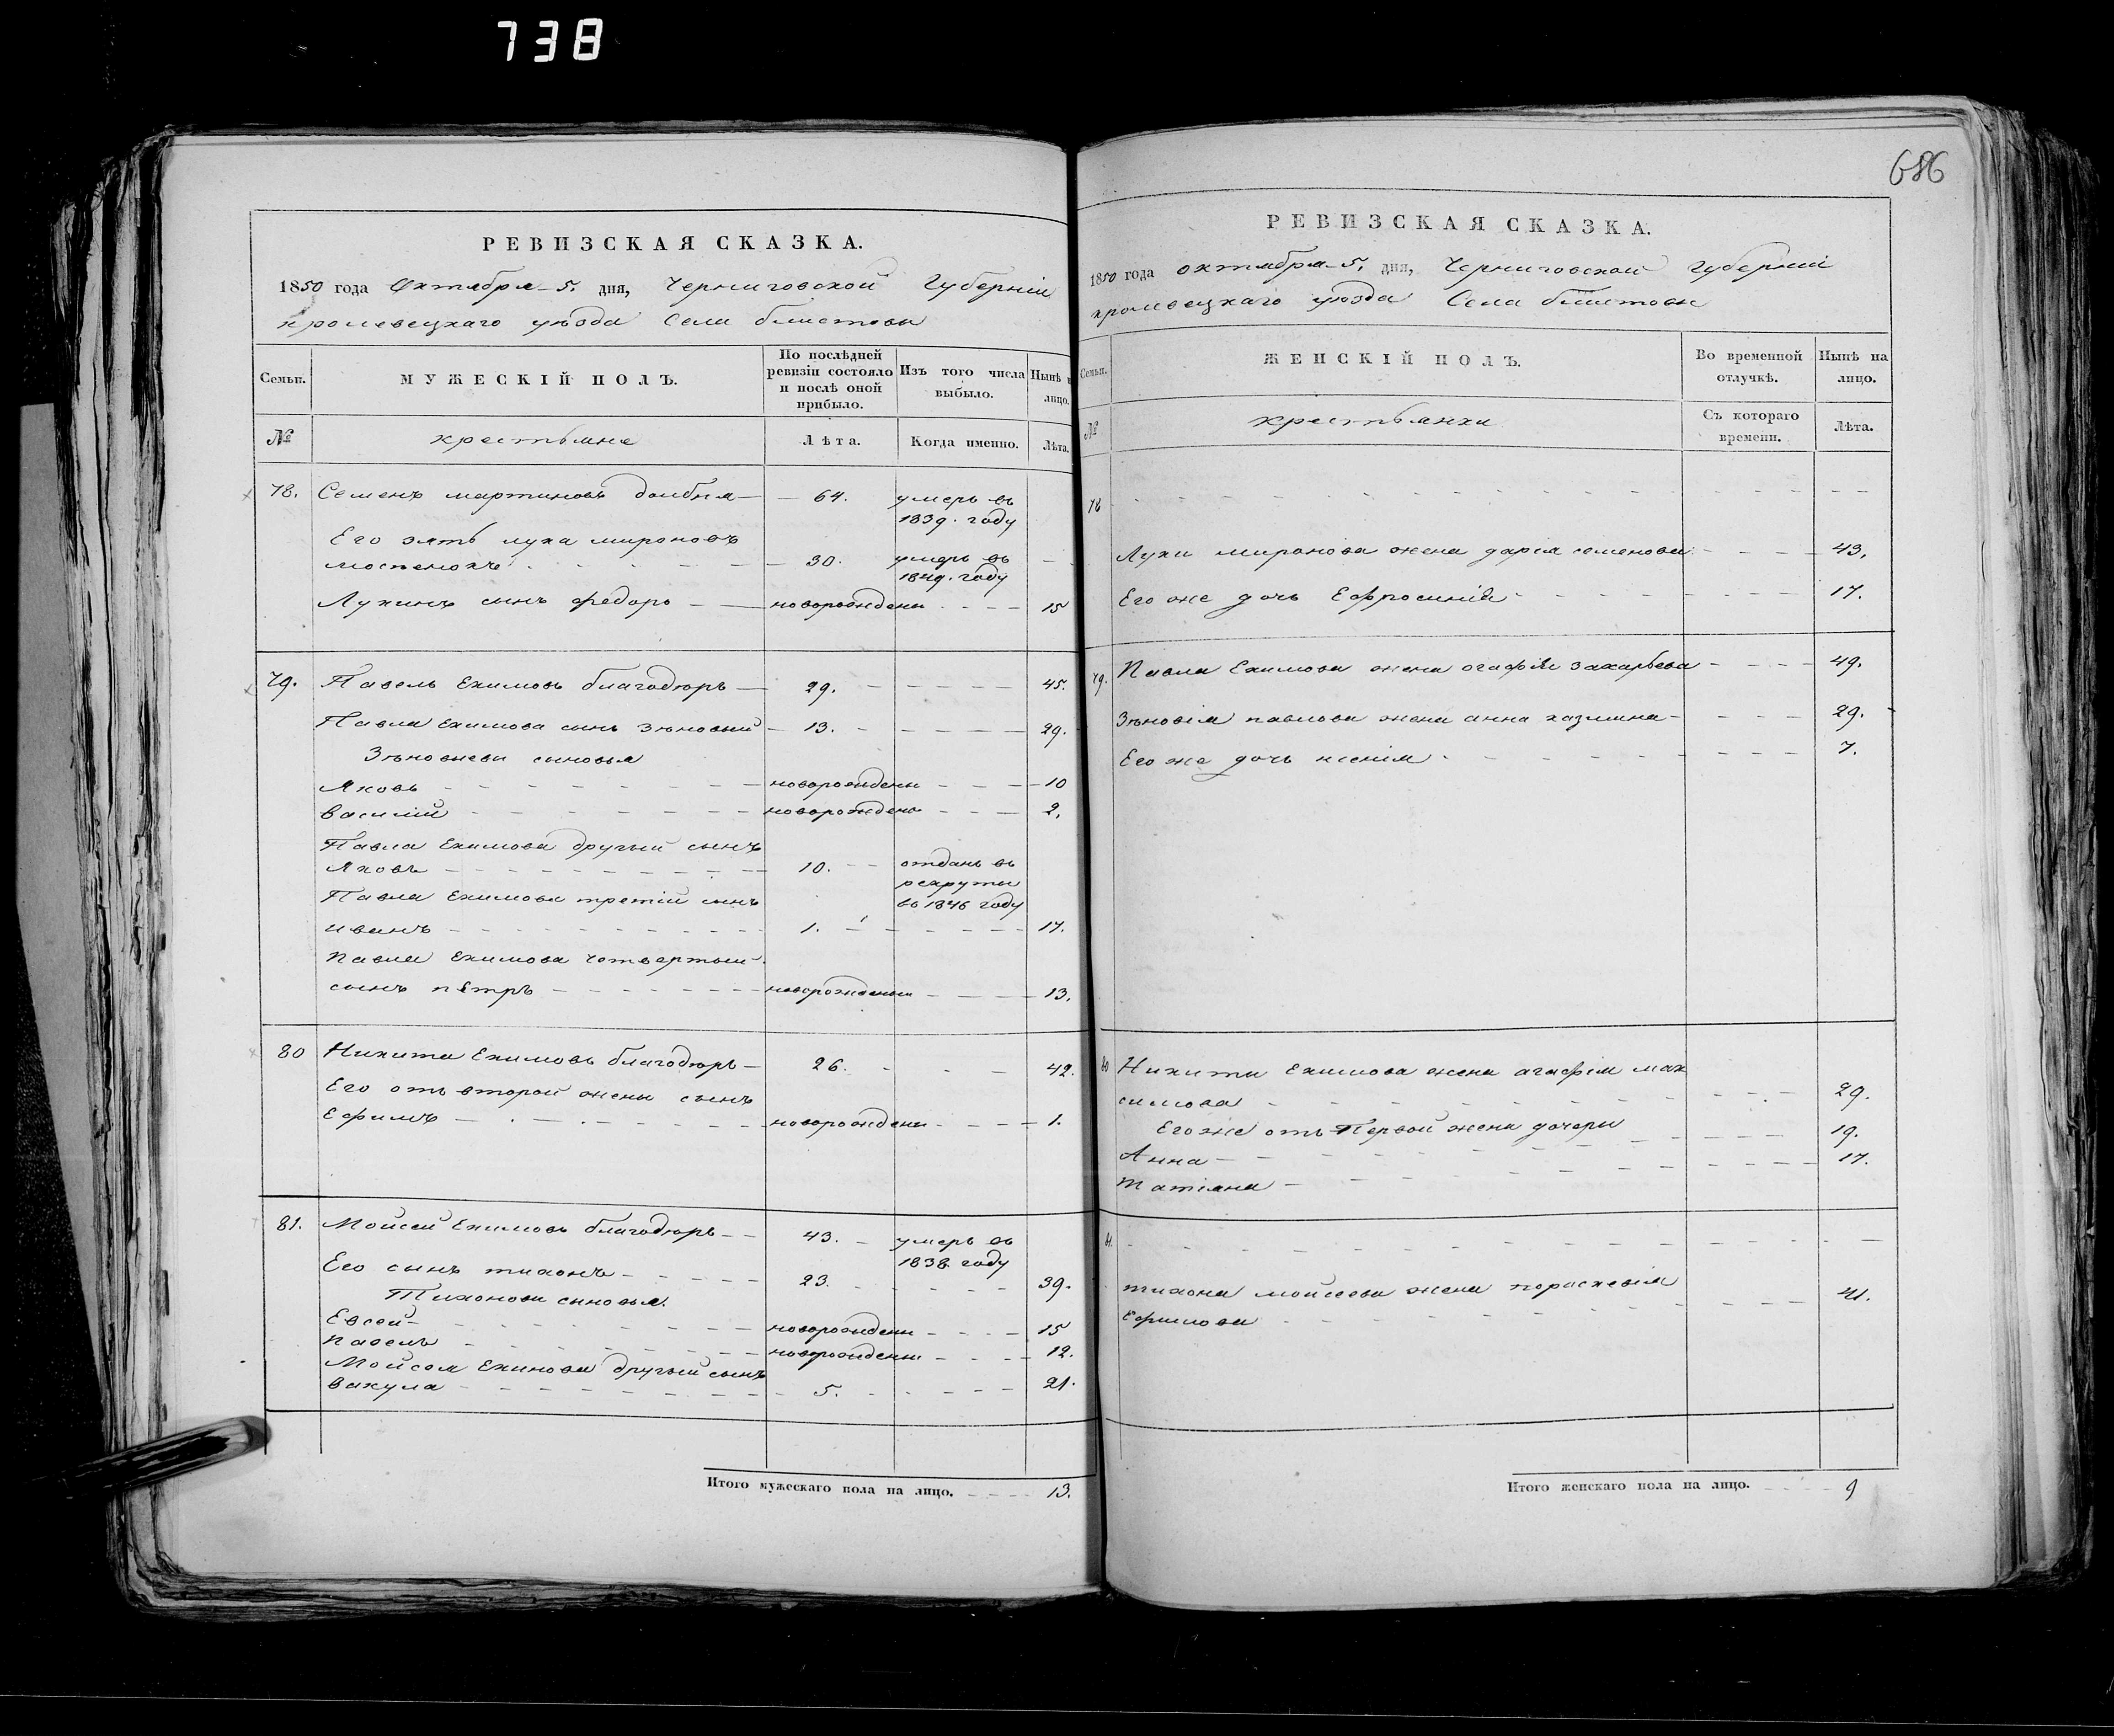 738
РЕВИЗСКАЯ СКАЗКА.
1850 года Октября 5. дня, Черниговской Губерніи
кролевецкаго уѣзда Села блистовы
Семьи.
МУЖЕСКІЙ ПОЛЪ.
По послѣдней ревизіи состояло и послѣ оной прибыло.
Изъ того числа выбыло.
Нынѣ н лицо.
№
крестьяне
Лѣта.
Когда именно.
Лѣта.
78. Семенъ мартиновъ долбня 64. умеръ въ
1839. году
Его зять лука мироновъ
30. умеръ въ
1849. году
Лукинъ сынъ федоръ новорожденъ 15
79. Павелъ Екимовъ благодюръ 29. 45.
Павла Екимова сынъ Зѣновый 13. 29.
Зѣновиеви сыновья
Яковъ новорожденъ 10
василій новорожденъ 2.
Павла Екимова другый сынъ
Яковъ 10. отданъ въ
рекруты
въ 1846 году
Павла Екимова третій сынъ
иванъ 1. 17.
павла Екимова четвертый
сынъ пЕтръ новорожденъ 13.
80 Никита Екимовъ благодюръ 26. 42.
Его отъ второй жены сынъ
Ефимъ новорожденъ 1.
81. Мойсей Екимовъ благодюръ 43. умеръ въ
1838. году
Его сынъ тихонъ 23. 39.
Тихонови сыновья.
Евсей новорожденъ 15
павелъ новорожденъ 12.
Мойсея Екимова другый сынъ
вакула 5. 21.
Итого мужескаго пола на лицо. 13.
686
РЕВИЗСКАЯ СКАЗКА.
1850 года октября 5. дня, Черниговской Губерніи
кролевецкаго уѣзда Села блистовы
Семьи.
ЖЕНСКІЙ ПОЛЪ.
Во временной отлучкѣ.
Нынѣ на лицо.
№
крестьянки
Съ котораго времени.
Лѣта.
78
Луки миронова жена дарія семенова 43.
Его же дочь Ефросинія 17.
79. Павла Екимова жена агафія захарьева 49.
Зѣновія павлова жена анна 29.
Его же дочь ксенія 7.
80 Никиты Екимова жена агафія мак
симова 29.
Его же отъ Первой жены дочери
Анна 19.
Татіяна 17.
81.
тихона мойсеева жена параскевія
Ефимова 41.
Итого женскаго пола на лицо. 9